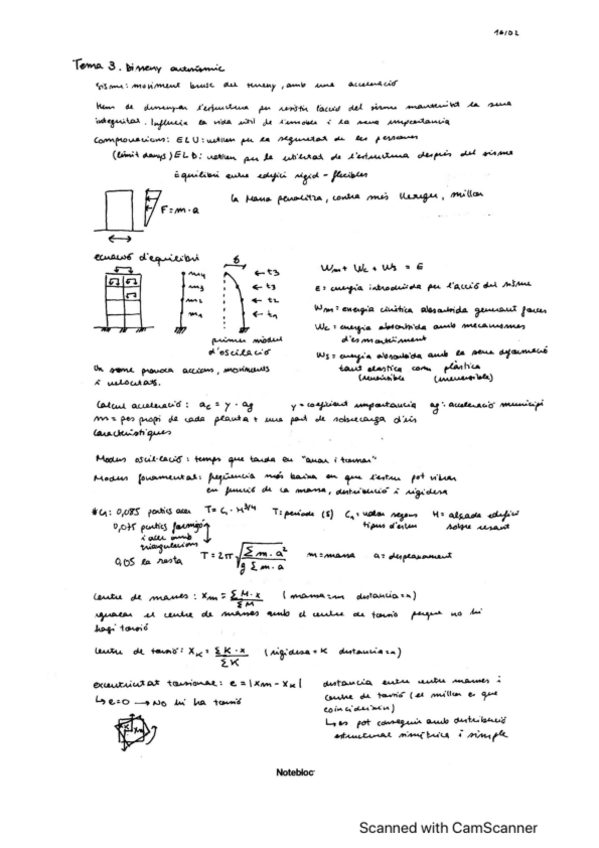 16/02
Tema 3. Disseny antisísmic
Sisme: moviment brusc del terreny, amb una acceleració
Hem de dissenyar l'estructura per resistir l'acció del sisme mantenint la seva
integritat. Influeix la vida útil de l'immoble i la seva importància
Comprovacions: ELU: vetllen per la seguretat de les persones
(límit danys) ELD: vetllen per la utilitat de l'estructura després del sisme
Equilibri entre edifici rígid - flexibles
F = m · a
la massa penalitza, contra més lleuger, millor
equació d'equilibri
δ
m4 ← t3
m3 ← t3
m2 ← t2
m1 ← t1
primer modul
d'oscilació
Wm + Wc + Ws = E
E = energia introduïda per l'acció del sisme
Wm = energia cinètica absorbida generant forces
Wc = energia absorbida amb mecanismes
d'esmortiment
Ws = energia absorbida amb la seva deformació
tant elàstica com plàstica
(reversible (irreversible)
Un sisme provoca accions, moviments
i velocitats.
Càlcul acceleració: ac = γ · ag
γ = coeficient importancia
ag: acceleració municipi
m = pes propi de cada planta + una part de sobrecarga d'ús
característiques
Modus oscil·lació: temps que tarda en "anar i tornar"
Modus fonamental: freqüència més baixa en que l'estru pot vibrar
en funció de la massa, distribució i rigidesa
*C1: 0,085 pòrtics acer
T = C1 · H^3/4
T: període (s)
C1 = valor segons
tipus d'estru
H = alçada edifici
sobre rasant
0,075 pòrtics formigó
i acer amb
triangulacions
0,05 la resta
T = 2π √(Σ m · a² / g Σ m · a)
m = massa
a = desplaçament
Centre de masses: Xm = Σ M · x / Σ M (massa = m distancia = x)
igualar el centre de masses amb el centre de torsió perque no hi
hagi torsió
Centre de torsió: XK = Σ K · x / Σ K (rigidesa = K distancia = x)
excentricitat torsional: e = |Xm - XK|
↳ e = 0 → No hi ha torsió
distancia entre centre masses i
centre de torsió (el millor es que
coincideixin)
↳ es pot conseguir amb distribució
estructural simètrica i simple
Notebloc
Scanned with CamScanner